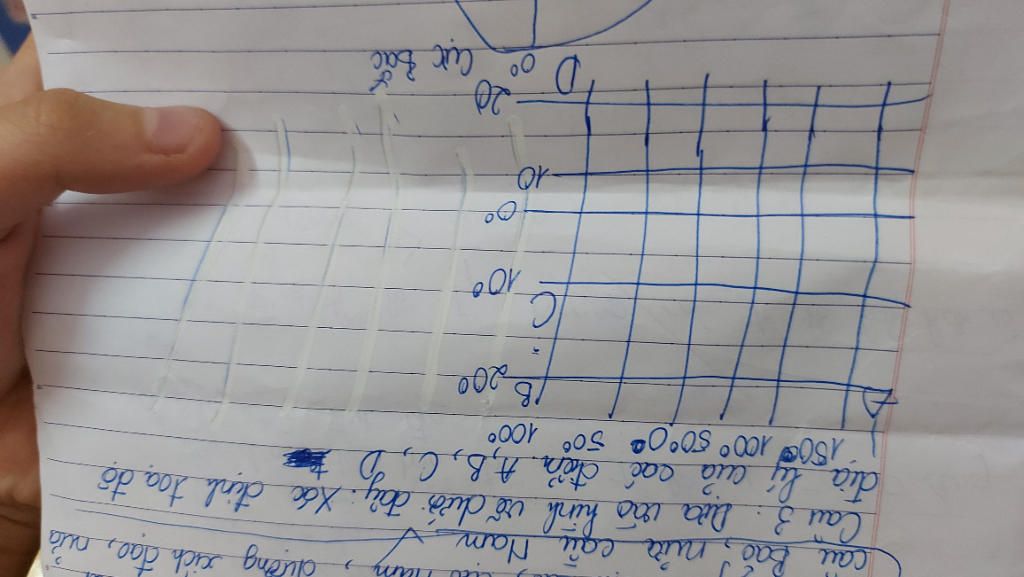 Nam, đường xích đạo, nửa
cầu Bắc, nửa cầu Nam
Câu 3: Dựa vào hình vẽ dưới đây: Xác định toạ độ
địa lý của các điểm A, B, C, D
150° 100° 50° 0° 50° 100°
A B 20°
C 10°
0°
10
D 20
0° cực Bắc